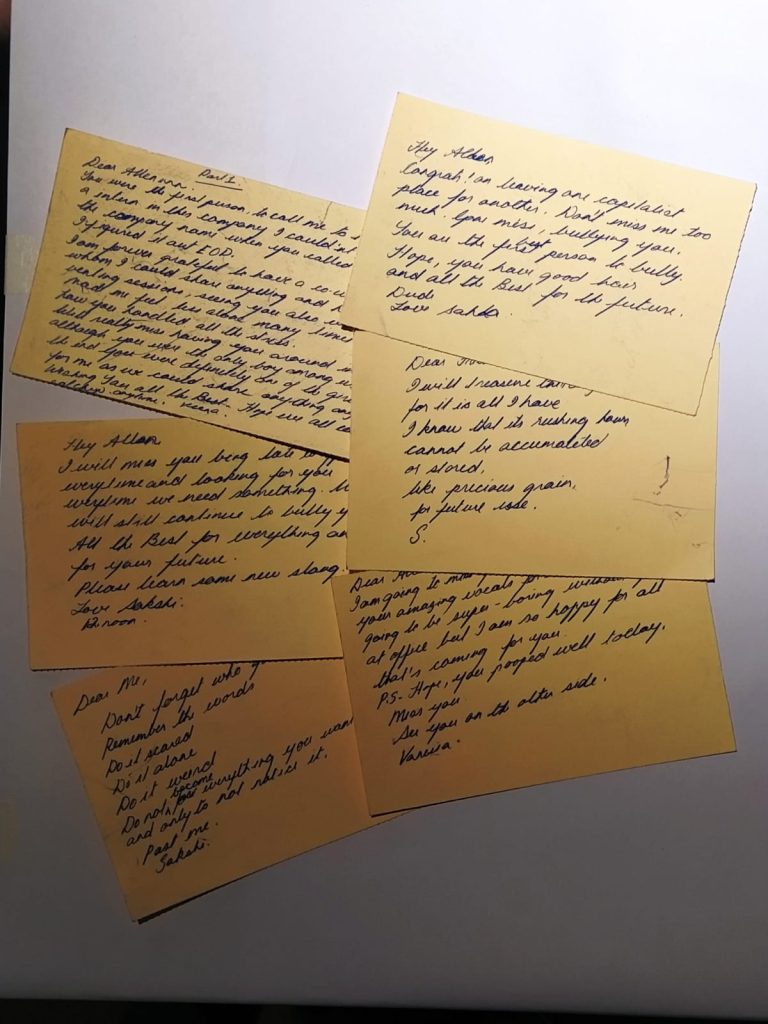 Part 1
Dear
You were the first person to call me to
a intern in this company I could
the company name when you called
I figured it out EOD.
I am forever grateful to have a co
whom I could share anything and
venting sessions, seeing you also
mad me feel less alone many time
how you handled all the stress.
Will really miss having you around
although you were the only boy among
the end you were definitely one of the
for me as we could share anything
Wishing you all the Best. Hope we all
anytime.
Hey
Congrats! on leaving one capitalist
place for another. Don't miss me too
much. Gona miss, bullying you.
You are the first best person to bully.
Hope, you have good
and all the Best for the future.
Dude
Love
Dear
I will treasure
for it is all I have
I know that its rushing hours
cannot be accumulated
or stored,
like precious grain,
for future use.
S.
Hey
I will miss you being late to
everytime and looking for you
everytime we need something.
will still continue to bully
All the Best for everything
for your future.
Please learn some new slang
Love Sakshi
Dear
I am going to miss
your amazing vocals for
going to be super-boring without
at office but I am so happy for all
that's coming for you.
P.S- Hope, you pooped well today.
Miss you.
See you on the other side.
Dear Me,
Don't forget who
Remember the words
Do it scared
Do it alone
Do it weird
Do not become everything you want
and only to not notice it.
Past me.
Sakshi.